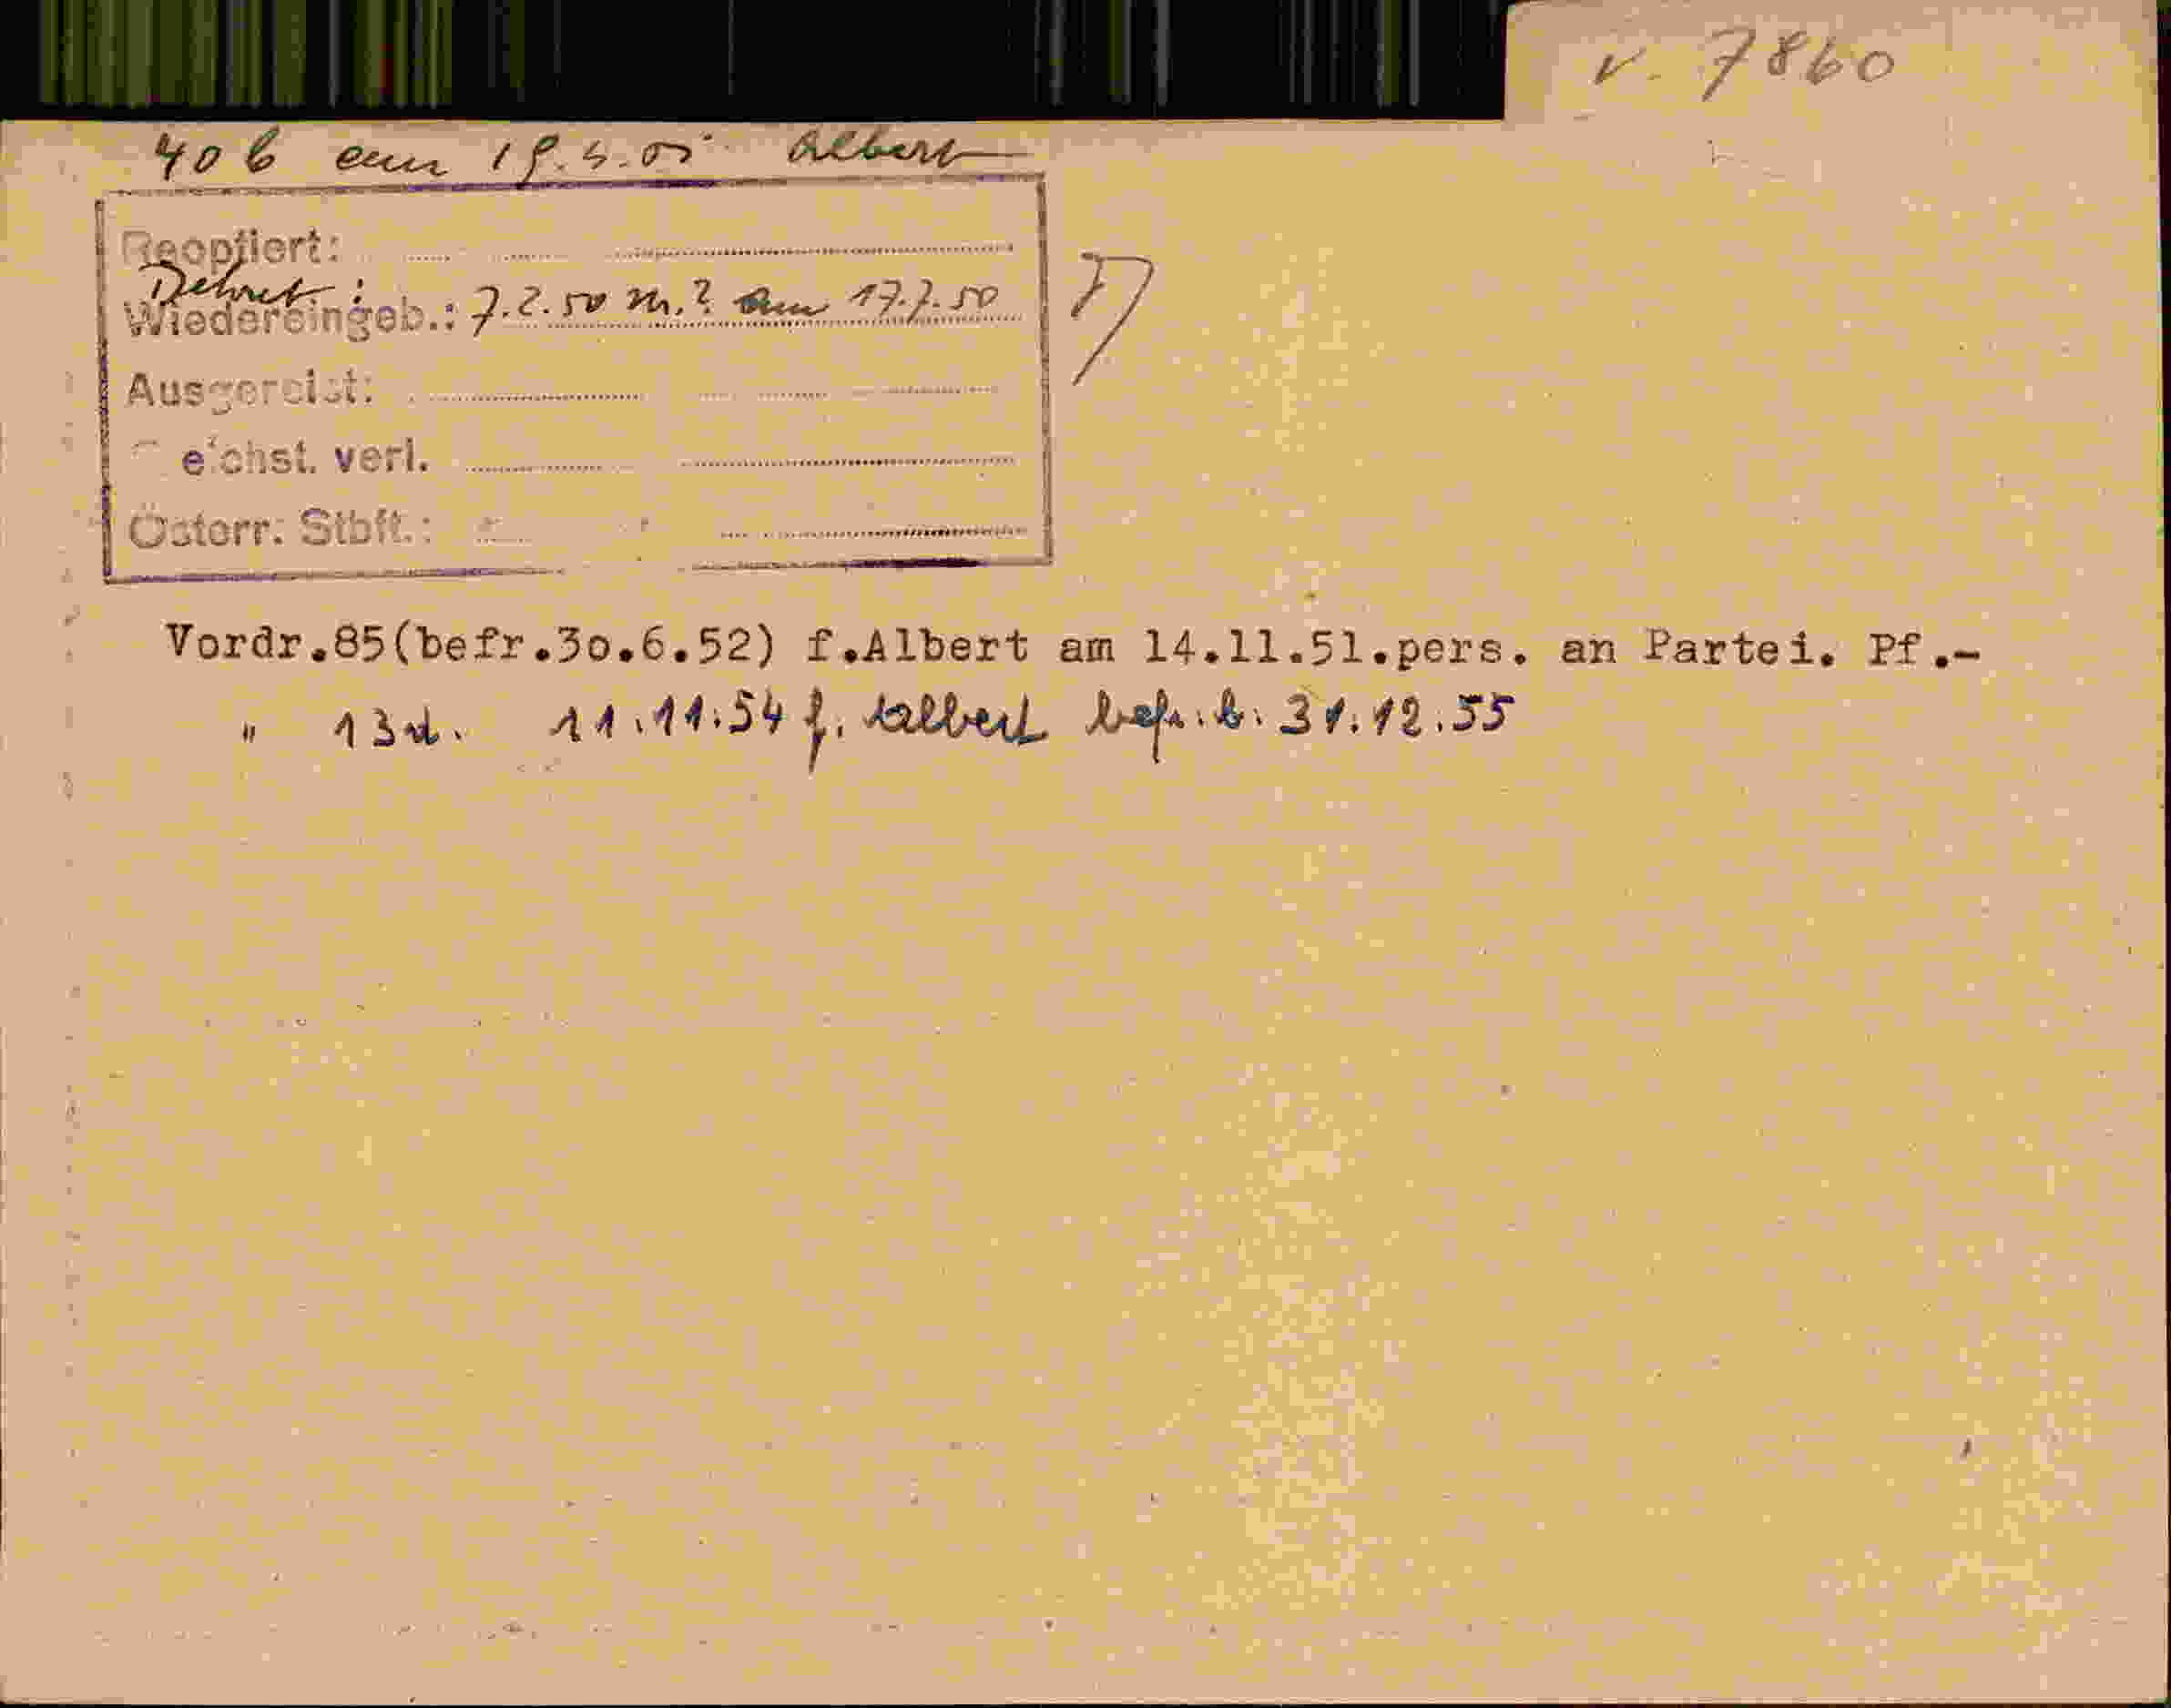 v. 7860
40 b am Albert
Reoptiert:
Dekret:
Wiedereingeb.: 7.2.50 Nr.? am 17.7.50
Ausgereist:
eichst. verl.
Österr. Stbft.:
Vordr.85(befr.30.6.52) f.Albert am 14.11.51.pers. an Partei. Pf.-
" 13d. 11.11.54 f. Albert befr. b. 31.12.55